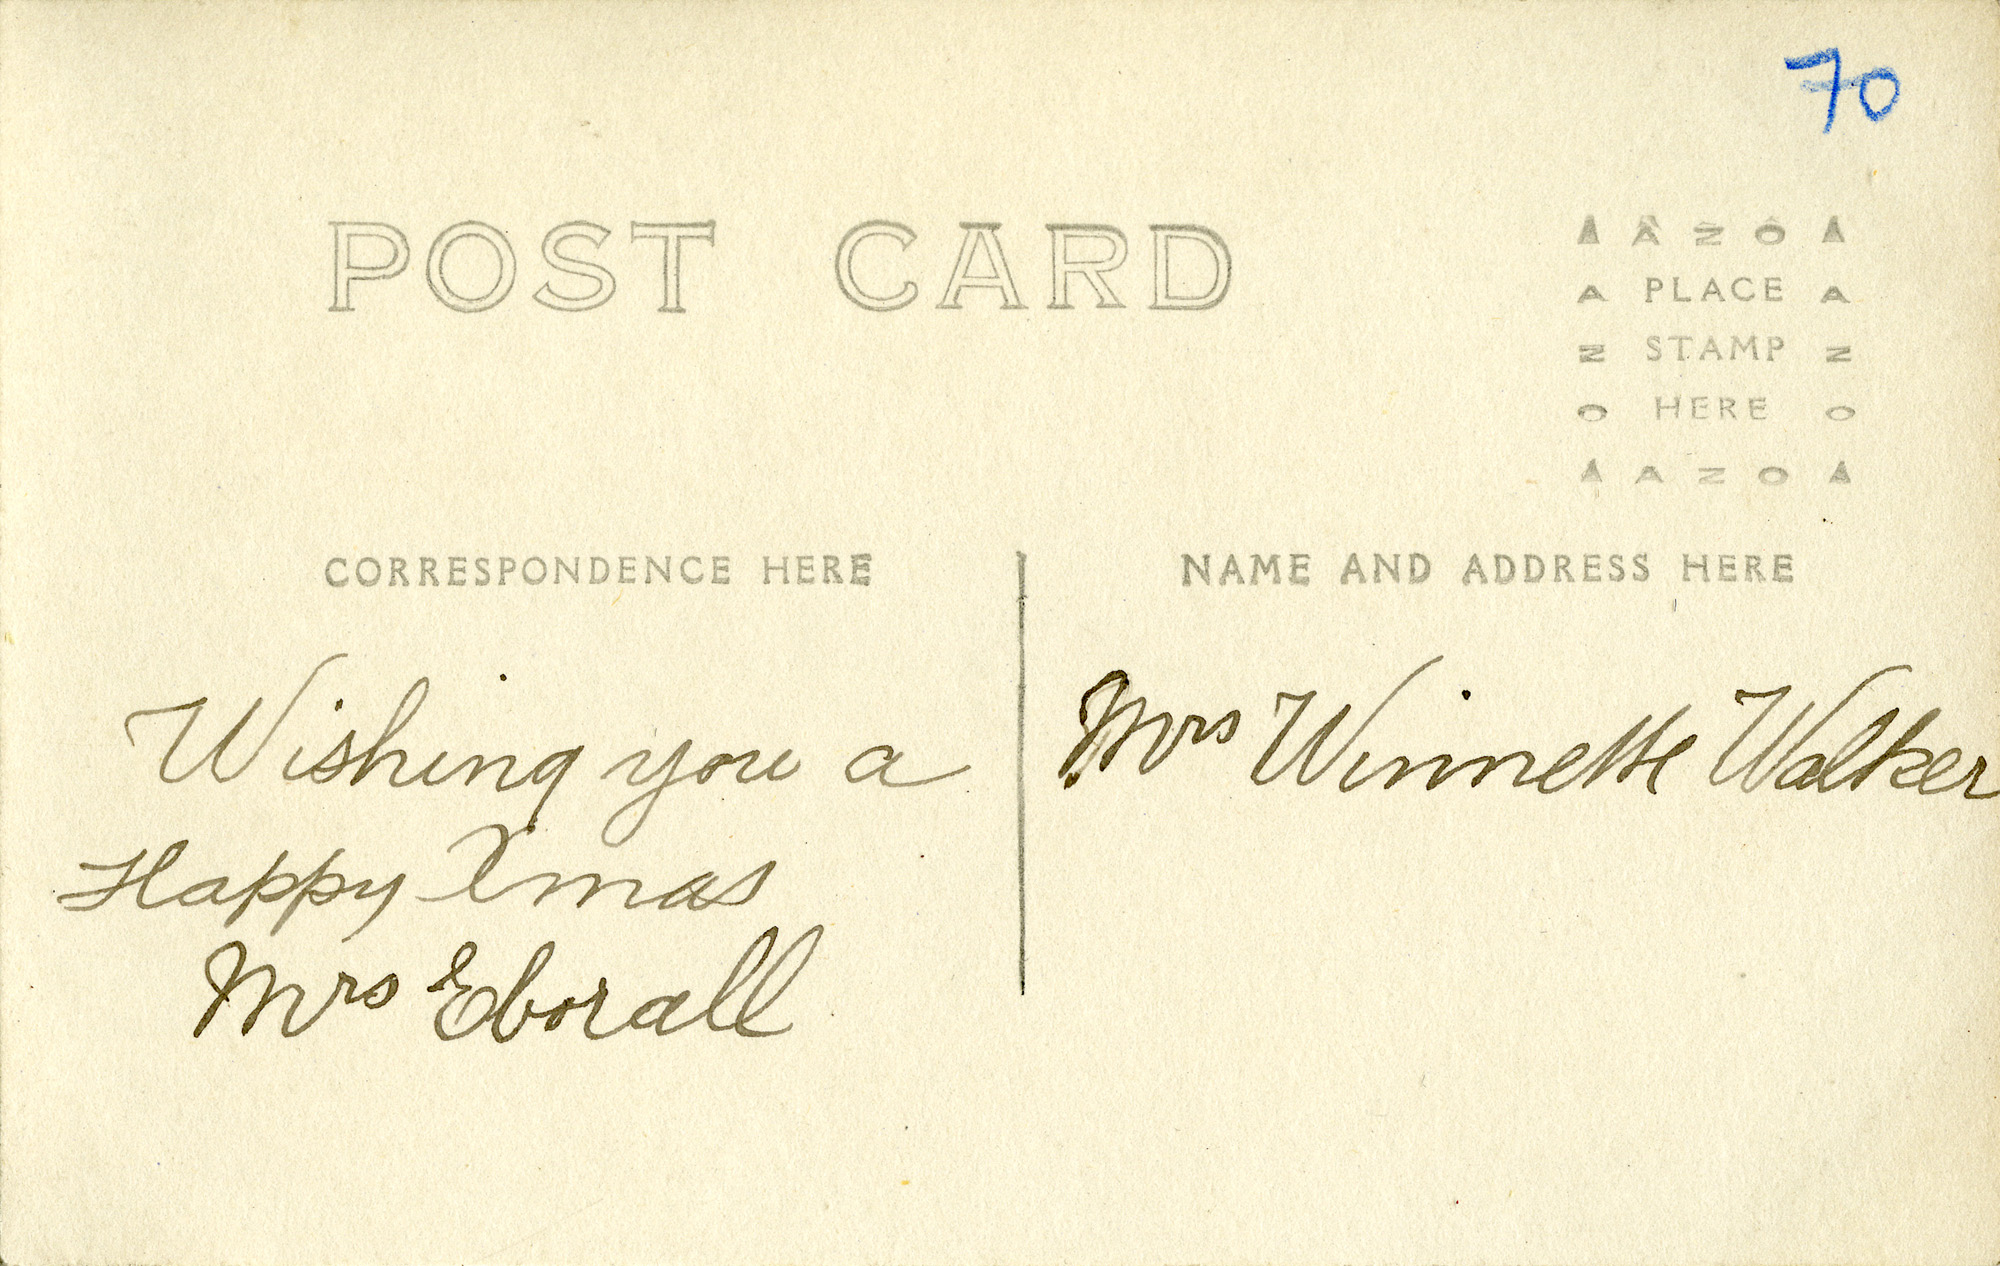 70
POST CARD
AZO
A PLACE A
Z STAMP Z
O HERE O
AZO
CORRESPONDENCE HERE
NAME AND ADDRESS HERE
Wishing you a
Happy Xmas
Mrs Eborall
Mrs Winnette Walker